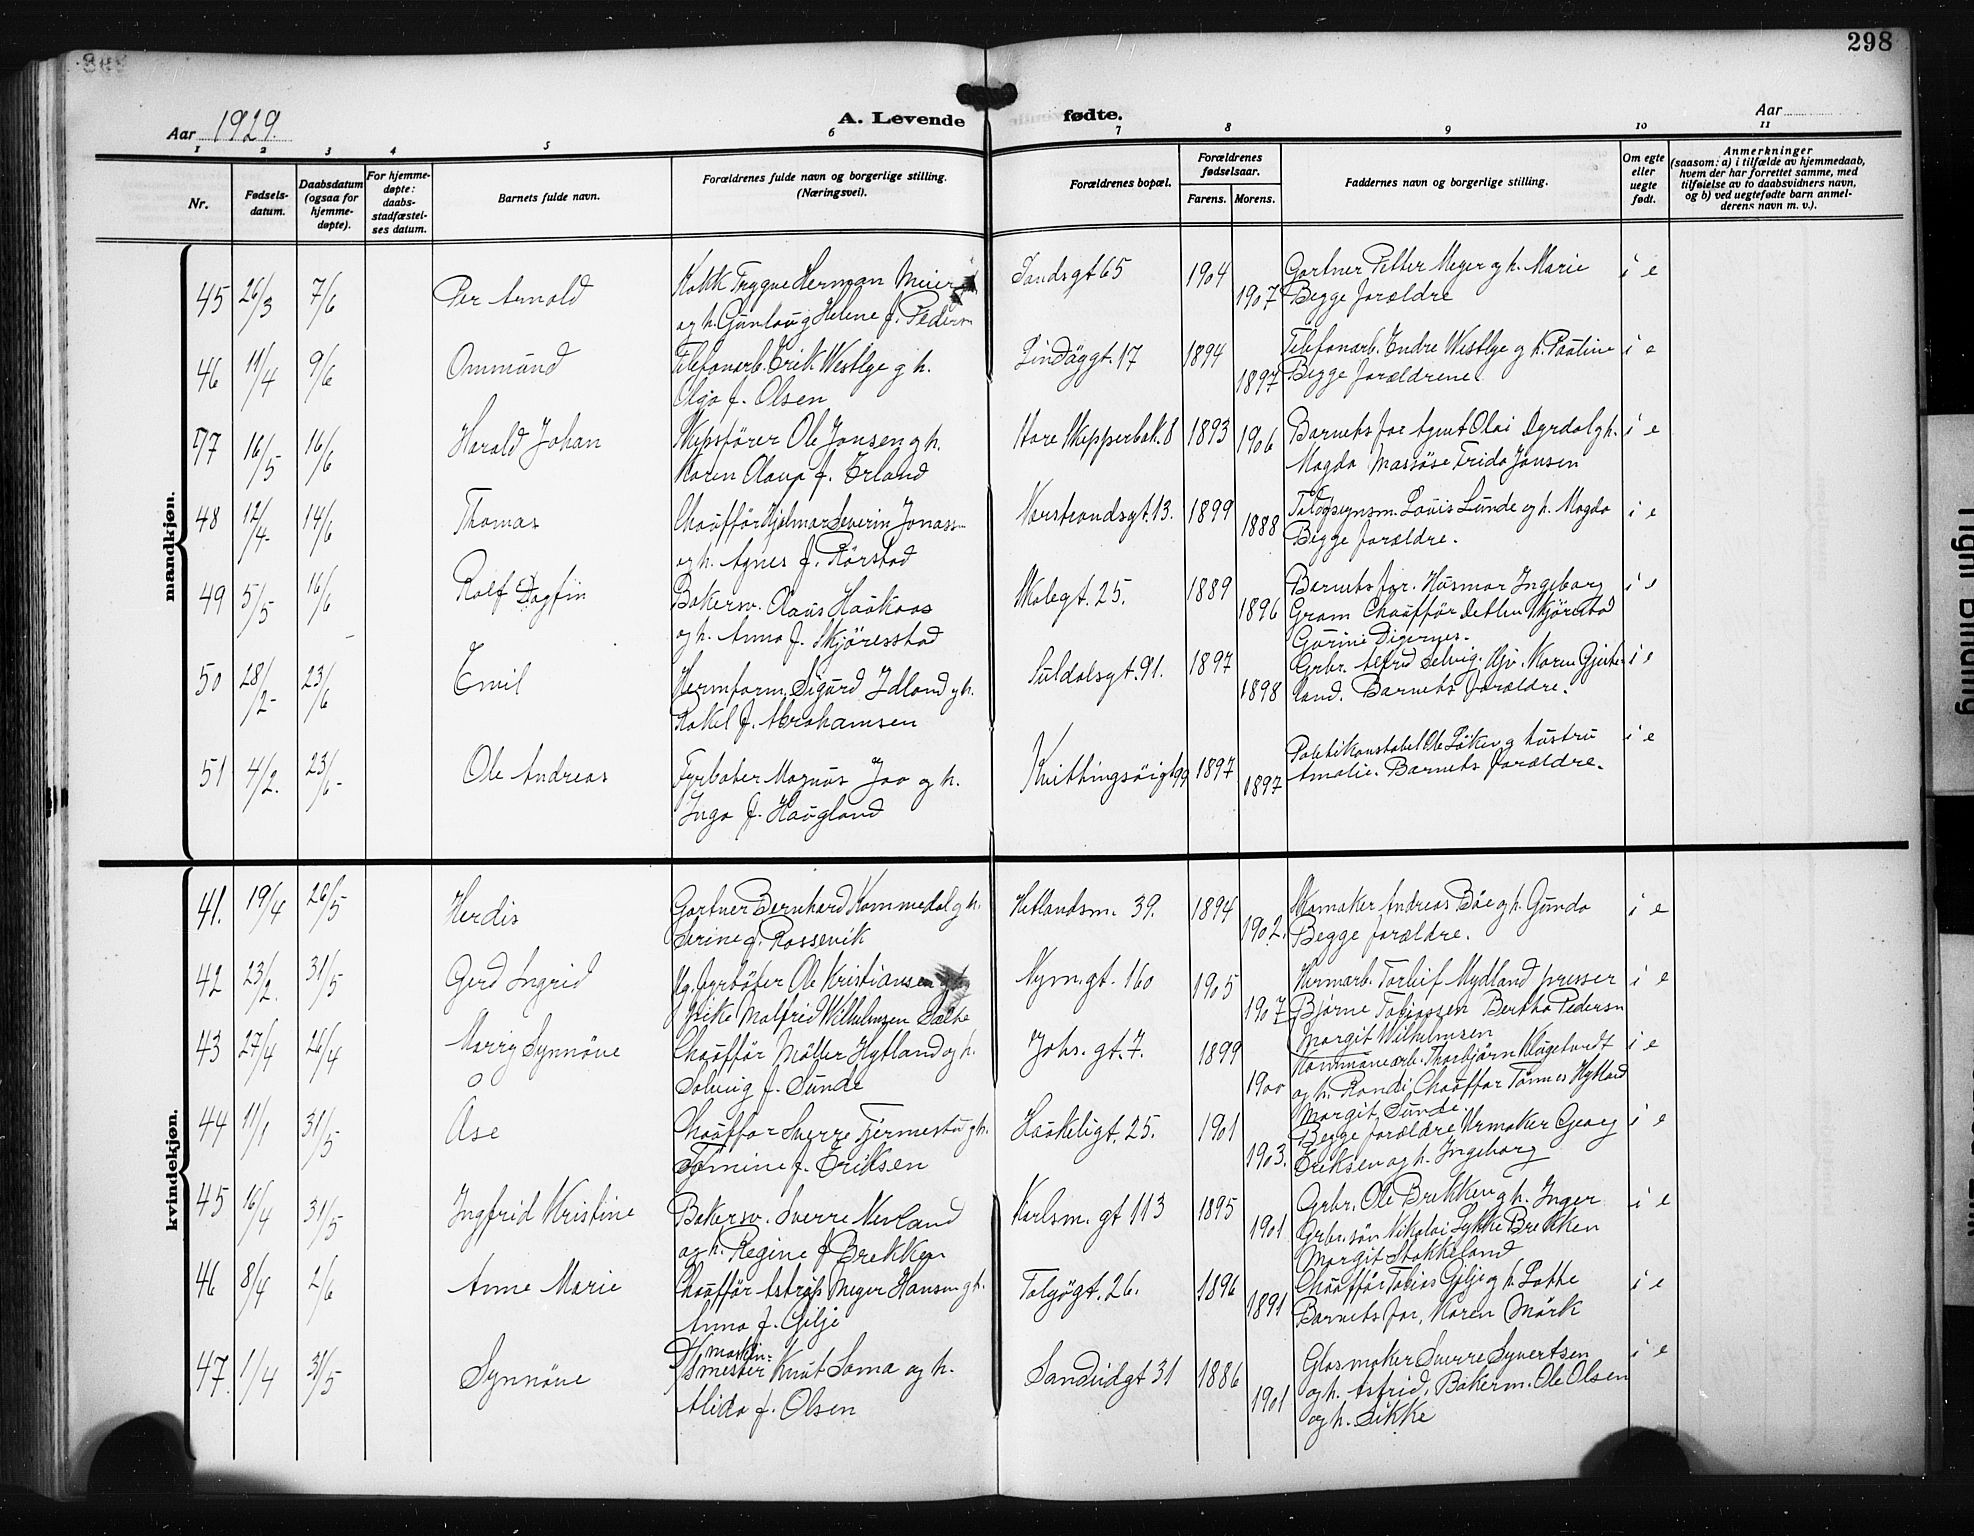 298
Aar 1929.
A. Levende fødte.
Aar
1 2 3 4 5 6 7 8 9 10 11
Nr.
Fødsels-
datum.
Daabsdatum
(ogsaa for
hjemme-
døpte).
For hjemme-
døpte:
daabs-
stadfæstel-
ses datum.
Barnets fulde navn.
Forældrenes fulde navn og borgerlige stilling.
(Næringsvei).
Forældrenes bopæl.
Forældrenes
fødselsaar.
Farens. Morens.
Faddernes navn og borgerlige stilling.
Om egte
eller
uegte
født.
Anmerkninger
(saasom: a) i tilfælde av hjemmedaab,
hvem der har forrettet samme, med
tilføielse av to daabsvidners navn,
og b) ved uegtefødte barn anmel-
derens navn m. v.).
mandkjøn.
45 26/3 7/6 Per Arnold
Kokk Trygve Herman Meier
og h. Gunlaug Helene f. Peders
Sandsgt 65 1904 1907
Gartner Petter Meyer og h. Marie
Begge forældre
i e
46 11/4 9/6 Ommund
Telefonarb. Erik Westlye g h.
Olga f. Olsen
Lindøygt. 17 1894 1897
Telefonarb. Endre Westlye g h. Pauline
Begge forældrene.
i e
47 16/5 16/6 Harald Johan
Skipsfører Ole Jonsen g h.
Karen Olava f. Erland
Store Skipperbak. 8 1893 1906
Barnets far Agent Olai Dyrdal g h.
Magda Massøse Frida Jonsen
i e
48 12/4 14/6 Thomas
Chauffør Hjalmar Severin Jonass
og h. Agnes f. Rørstad
Norstrandsgt. 13. 1899 1888
Louis Lunde og h. Magda
Begge forældre.
i e
49 5/5 16/6 Rolf Dagfin
Bakersv. Claus Haakaas
og h. Anna f. Skjøresstad
Skolegt. 25. 1889 1896
Barnets far. Husmor Ingeborg
Gram Chauffør Detlev Skjørestad
Gurine Digernes.
i e
50 28/2 23/6 Emil
Hermform. Sigurd Idland g h.
Rakel f. Abrahamsen
Suldalsgt. 91. 1897 1898
Grbr. Alfred Selvig. Karen Gjerde-
land. Barnets forældre.
i e
51 4/2. 23/6 Ole Andreas
Fyrbøter Magnus Joo og h.
Inga f. Haugland
Kvithingsøigt 99 1897 1897
Politikonstabel Ole Løken g hustru
Amalie. Barnets forældre.
i e
kvindekjøn.
41. 19/4 26/5 Herdis
Gartner Bernhard Kommedal g h.
Serine f. Rossevik
Hetlandsm. 39. 1894 1902.
Skomaker Andreas Bøe g h. Gunda
Begge forældre.
i e
42 23/2. 31/5 Gerd Ingrid
fyrbøter Ole Kristiansen
Malfrid Wilhelmsen
Nym.gt. 160 1905 1907
Hermarb. Torleif Mydland presser
Bjørne Tobiassen Bertha Pedersn
Margit Wilhelmsen
i e
43 27/4 26/4 Marry Synnøve
Chauffør Møller Hytland og h.
Solveig f. Sunde
Johs. gt. 7. 1899 1900
Kommunearb. Thorbjørn Klugetvedt
og h. Randi Chauffør Tønnes Hytland
Margit Sunde.
i e
44 11/1 31/5 Åse
Chauffør Sverre Fjermestad g h.
Tomine f. Eriksen
Haukeligt. 25. 1901 1903.
Begge forældre Urmaker Georg
Eriksen og h. Ingeborg
i e
45 16/4 31/5 Ingfrid Kristine
Bakersv. Sverre Nevland
og h. Regine f Brekken
Karlsm. gt 113 1895 1901
Grbr. Ole Brekken g h. Inger
Grbr. søn Nikolai Lykke Brekken
Margit Stokkeland
i e
46 8/4 2/6 Anne Marie
Chauffør Astrup Meyer Hansen g h.
Anna f. Gilje
Tolgøgt. 26. 1896 1891
Chauffør Tobias Gilje g h. Lotte
Barnets far, Karen Mørk
i e
47. 1/4 31/5 Synnøve
maskin-
mester Knut Soma og h.
Alida f. Olsen
Sandeidgt 31 1886 1901
Glasmaker Sverre Syvertsen
og h. Astrid, Bakerm. Ole Olsen
og h. Sikke
i e